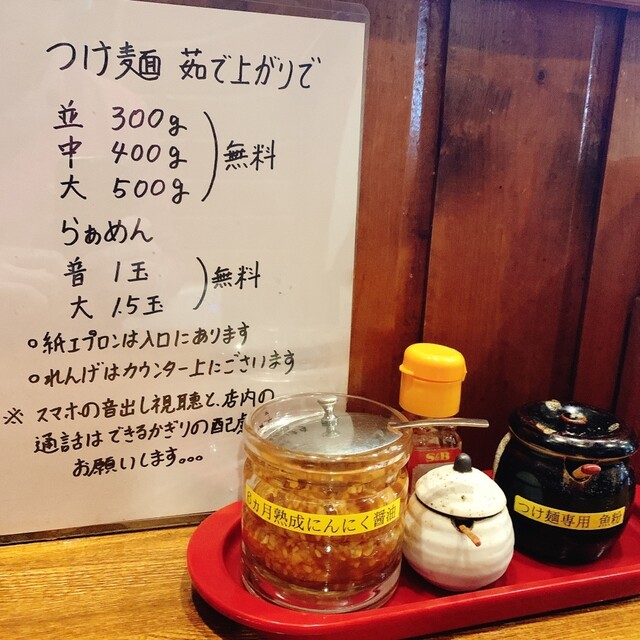 つけ麺 茹で上がりで
並 300g
中 400g
大 500g
無料
らぁめん
普 1玉
大 1.5玉
無料
○紙エプロンは入口にあります
○れんげはカウンター上にございます
※ スマホの音出し視聴と、店内の
通話はできるかぎりの配慮
お願いします。。。
S&B
8ヵ月熟成にんにく醤油
つけ麺専用 魚粉